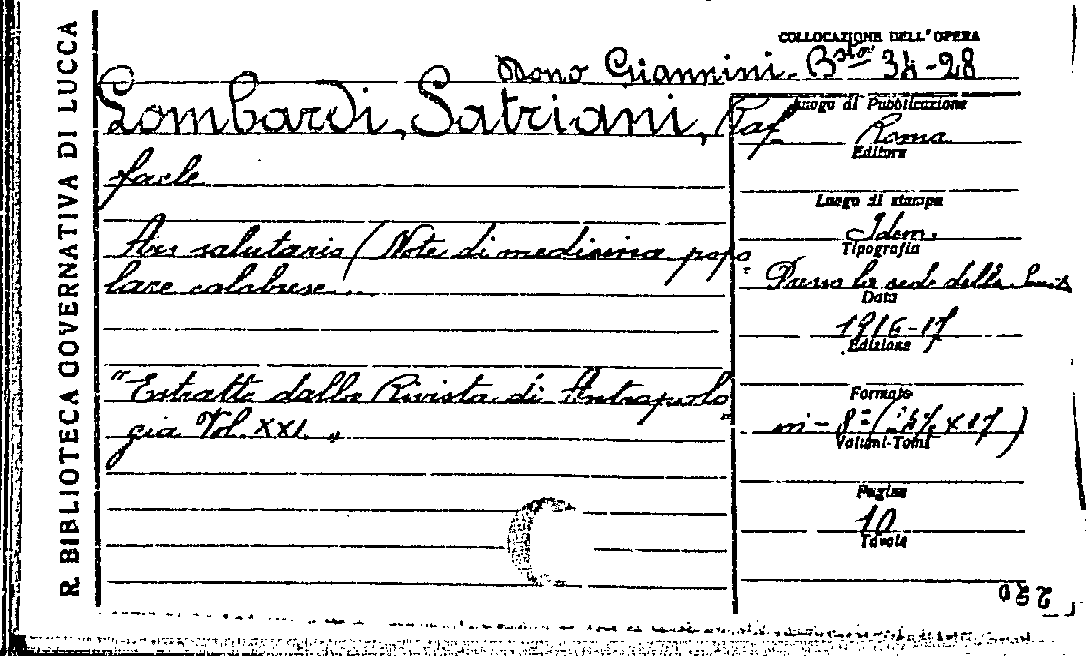 R. BIBLIOTECA GOVERNATIVA DI LUCCA
COLLOCAZIONE DELL'OPERA
Dono Giannini. B.sta 34-28
Lombardi, Satriani, Raf
faele
Ars salutaris (Note di medicina popo
lare calabrese...
"Estratto dalla Rivista di Antropolo
gia Vol. XXI. "
Luogo di Pubblicazione
Roma
Editore
Luogo di stampa
Idem.
Tipografia
Presso la sede della
Data
1916-17
Edizione
Formato
in - 8º ( x 17)
Volumi-Tomi
Pagine
10
Tavole
220